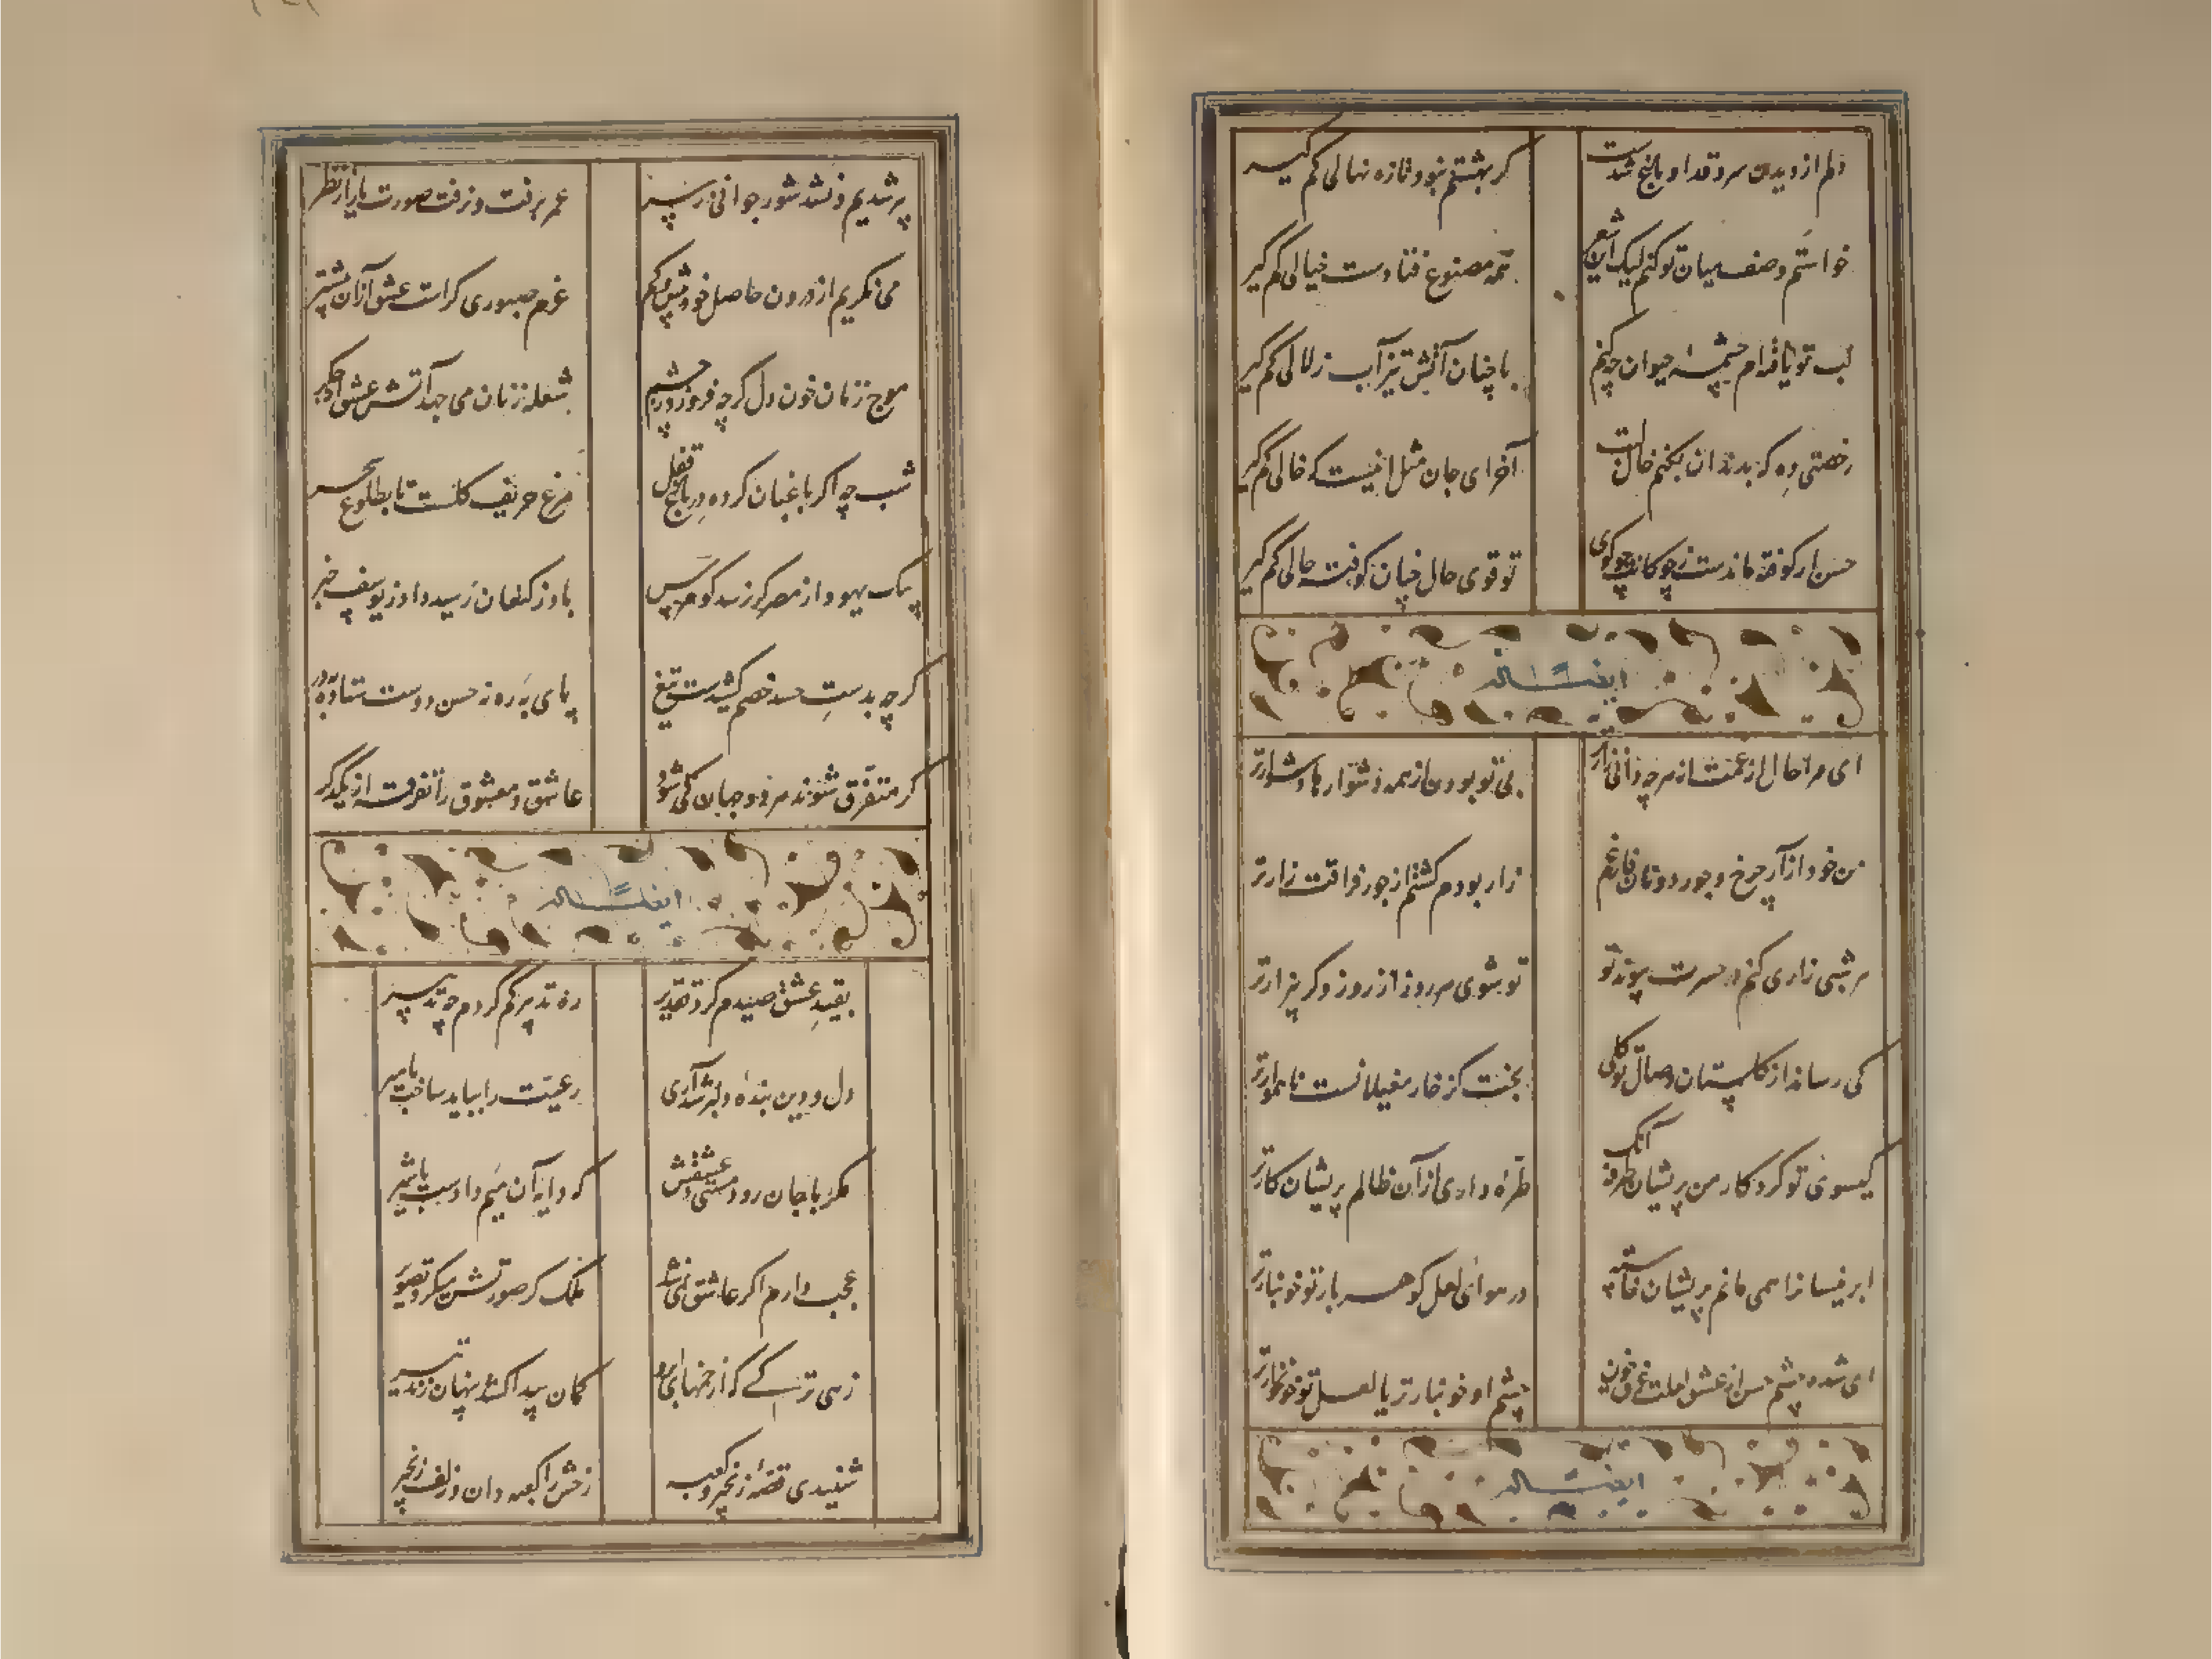 دلم از دیدن سرو قد او باغ شدست گر بهشتم نبود تازه نهالی کم گیر
خواستم وصف میان تو کنم لیک این شعر همه مصنوع فتادست خیالی کم گیر
لب تو یافته‌ام چشمهٔ حیوان چه کنم با چنان آتش تیز آب زلالی کم گیر
رخصتی ده که بدندان بکنم خال لبت آخر ای جان مثل اینست که خالی کم گیر
حسن ار کوفته ماندست ز چوگانت چو گوی تو قوی حال چنان کوفت حالی کم گیر
ایضاً له
ای مرا حال از غمت از هر چه دانی زارتر بی تو بودن از همه دشوارها دشوارتر
من خود از آزار چرخ و جور دونان فارغم زار بودم گشتم از جور فراقت زارتر
هر شبی زاری کنم در حسرت پیوند تو تو شوی هر روز از روز دگر بیزارتر
کی رساند از گلستان وصال تو گلی بخت کز خار مغیلانست ناهموارتر
گیسوی تو کرد کار من پریشان طرفه آنک طره داری از آن ظالم پریشان کارتر
ابر نیسانرا همی مانم پریشان خاسته در هوای لعل گوهر بار تو خونبارتر
ای شده چشم حسن از عشق لعلت غرق خون چشم او خونبارتر یا لعل تو خونخوارتر
ایضاً له
پیر شدیم و نشد شور جوانی ز سر عمر برفت و نرفت صورت یار از نظر
می‌نگریم از درون حاصل خود بیش و کم عزم صبوری کراست عشق از آن بیشتر
موج زنان خون دل گرچه فرو زد چشم شعله زنان می‌جهد آتش عشق از جگر
شب چه اگر باغبان کرده در باغ قفل مرغ حریف گلست تا بطلوع سحر
پیک یهودا ز مصر گر نرسد گو مرس باد ز کنعان رسید داد ز یوسف خبر
گرچه بدست حسد خصم کشیدست تیغ پای به ره نه حسن دوست ستاده بدر
گر متفرق شوند هر دو جهان کی شود عاشق و معشوق را تفرقه از یکدگر
ایضاً له
بقید عشق صیدم کرد تقدیر ره تدبیر گم کردم چه تدبیر
دل و دین بندهٔ دلبر شد آری رعیت را بباید ساخت با میر
مگر با جان رود مستی عشقش که دایه آن میم دادست با شیر
عجب دارم اگر عاشق نمی‌شد ملک گر صورتش میکرد تصویر
زهی ترکی که از چشمهای ابرو کمان پیدا کشد پنهان زند تیر
شنیدی قصهٔ زنجیر و کعبه رخش را کعبه دان و زلف زنجیر